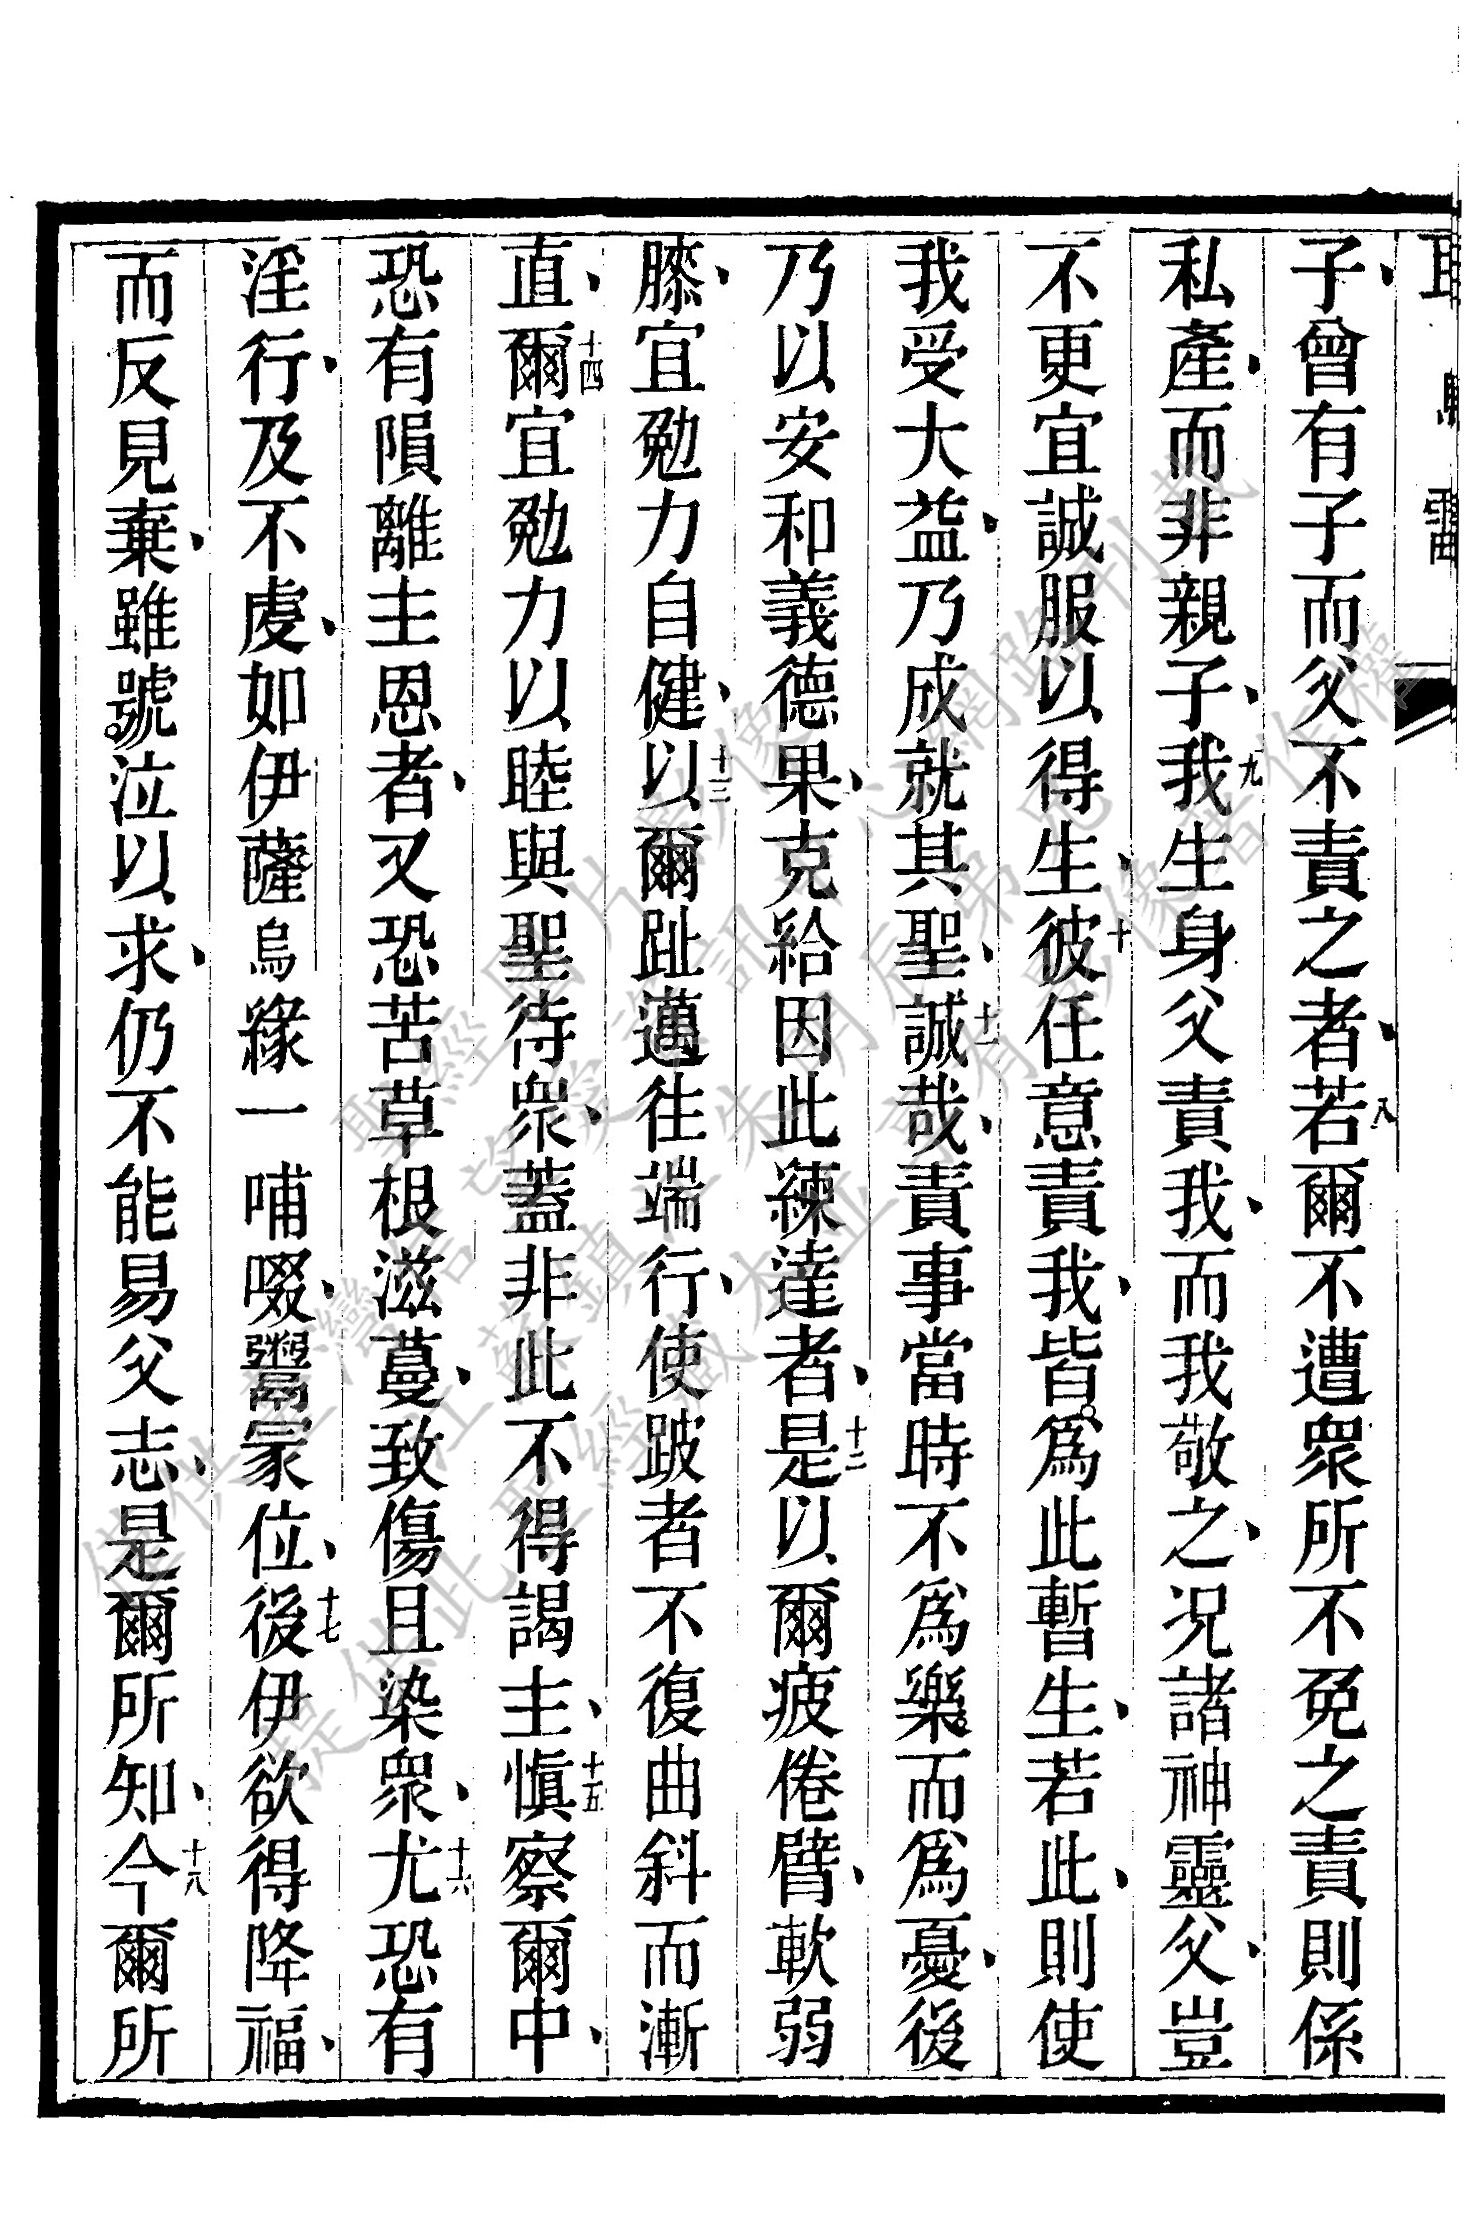 子曾有子而父不責之者八若爾不遭眾所不免之責則係
私產而非親子九我生身父責我而我敬之况諸神靈父豈
不更宜誠服以得生十彼任意責我皆爲此暫生若此則使
我受大益乃成就其聖十一誠哉責事當時不爲樂而爲憂後
乃以安和義德果克給因此練達者十二是以爾疲倦臂軟弱
膝宜勉力自健十三以爾趾邁往端行使跛者不復曲斜而漸
直十四爾宜勉力以睦與聖待眾蓋非此不得謁主十五愼察爾中
恐有隕離主恩者又恐苦草根滋蔓致傷且染眾十六尤恐有
淫行及不虔如伊薩烏緣一哺啜鬻冡位十七後伊欲得降福
而反見棄雖號泣以求仍不能易父志是爾所知十八今爾所